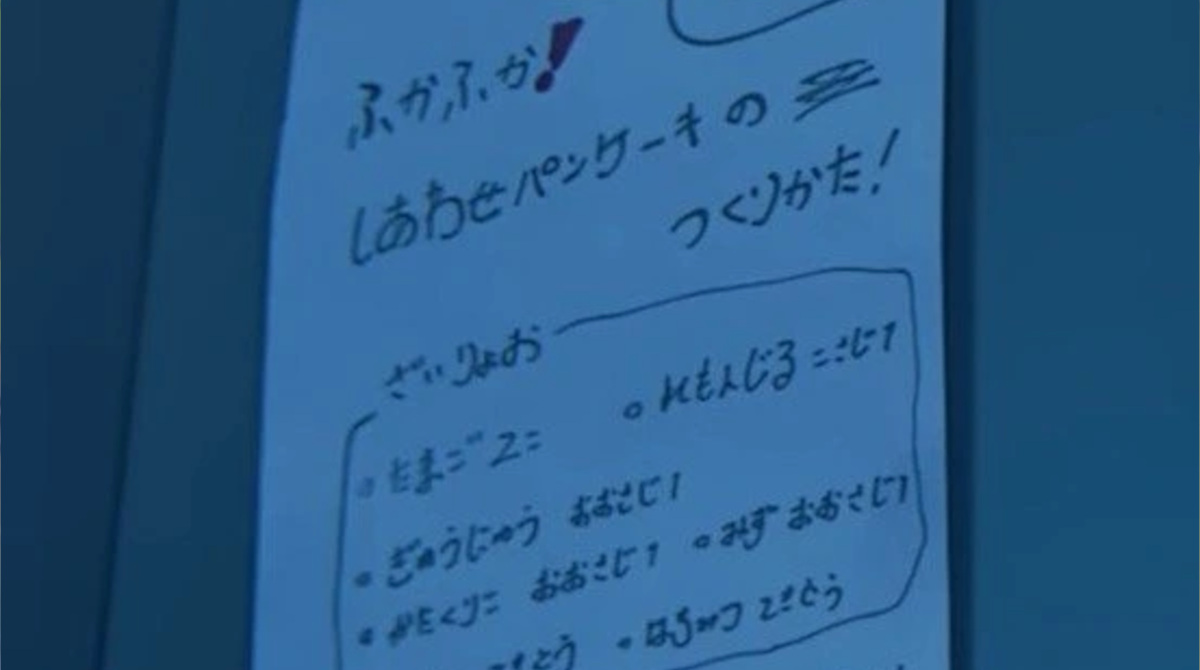 ふかふか!
しあわせパンケーキの
つくりかた!
ざいりょお
。たまご 2こ 。れもんじる こさじ1
。ぎゅうにゅう おおさじ1
。かたくりこ おおさじ1 。みず おおさじ1
。はちみつ てきとう